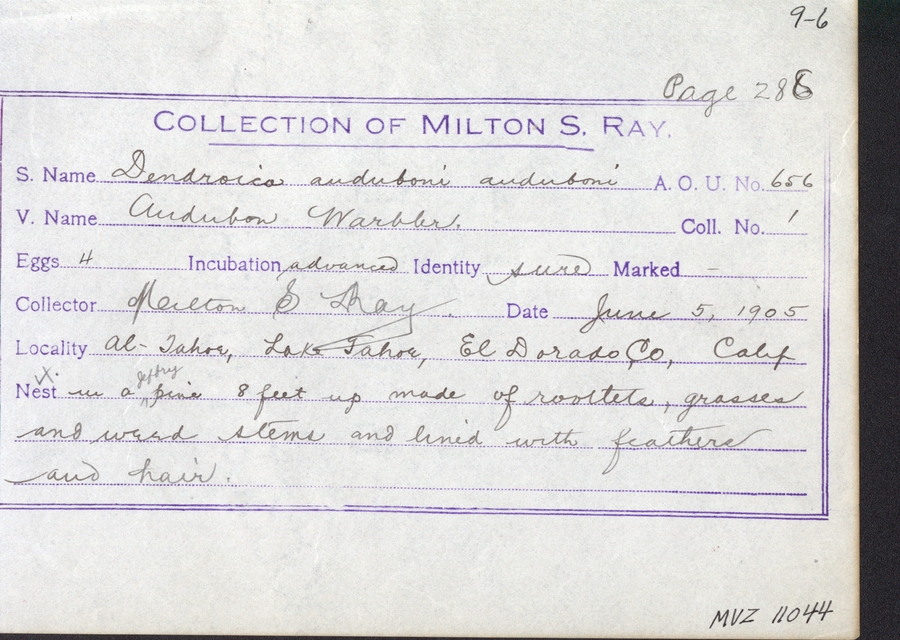 9-6
Page 286
COLLECTION OF MILTON S. RAY.
S. Name Dendroica auduboni auduboni A. O. U. No. 656
V. Name Audubon Warbler. Coll. No. 1
Eggs 4 Incubation advanced Identity sure Marked -
Collector Milton S Ray. Date June 5, 1905
Locality Al-Tahoe, Lake Tahoe, El Dorado Co, Calif
x. Jeffry
Nest in a pine 8 feet up made of rootlets, grasses
and weed stems and lined with feathers
and hair.
MVZ 11044